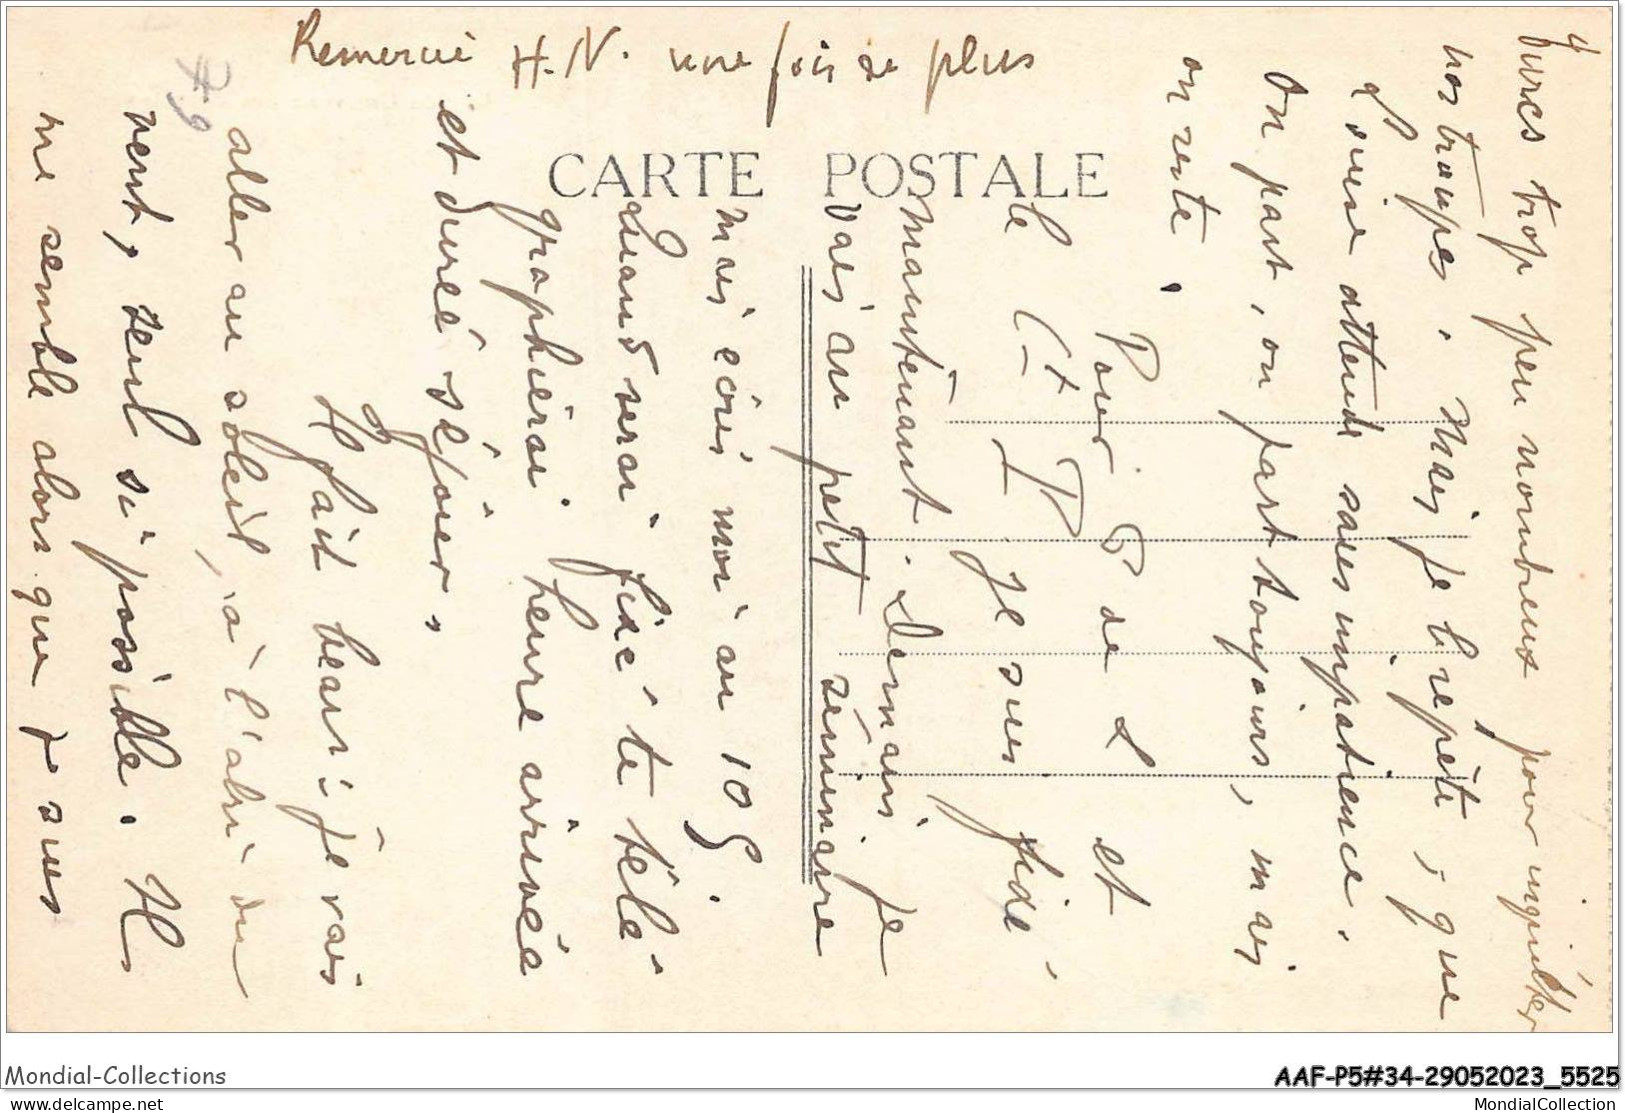 4
Turcs trop peu nombreux pour inquiéter
nos troupes. Mais je te répète, que
L suive attende sans impatience.
On part, on part toujours, mais
on reste.
Pour G de L et
le Ct P je suis fixé,
maintenant. Demain je
vais au petit séminaire
mais écris moi au 10 S.
Quand serai fixé te télé-
graphierai heure arrivée
et durée séjour.
Il fait beau : je vais
aller au soleil, à l'abri du
vent, seul si possible. Il
me semble alors que je suis
Remercie H.N. une fois de plus
F.9
CARTE POSTALE
Mondial-Collections
AAF-P5#34-29052023_5525
www.delcampe.net
MondialCollection